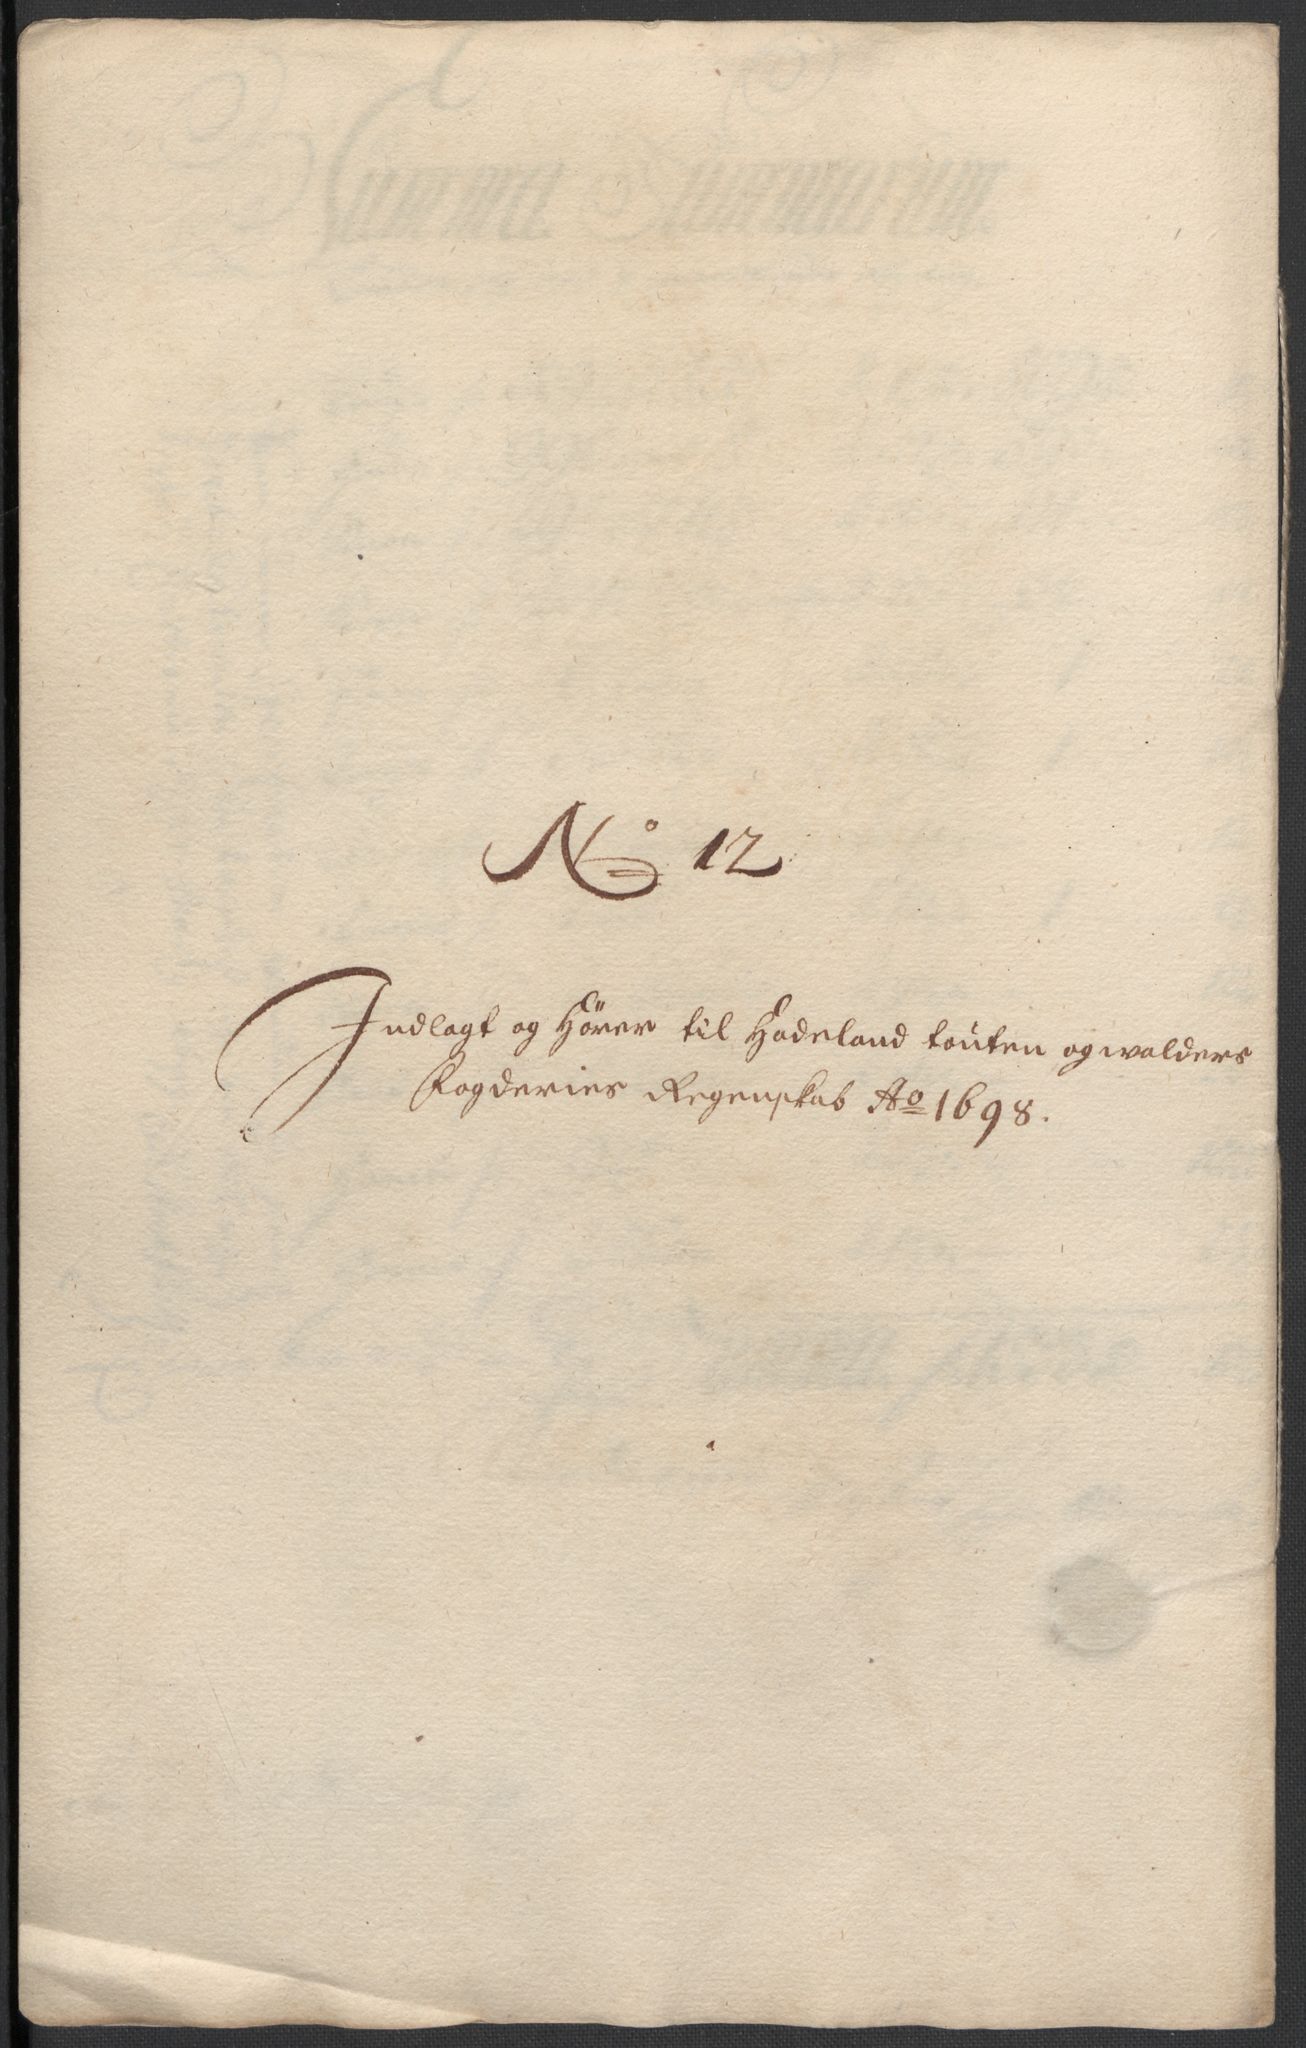 No 12
Indlagt og Hörer til Hadeland toüten og walders
Fogderies Regenskab Ao 1698.